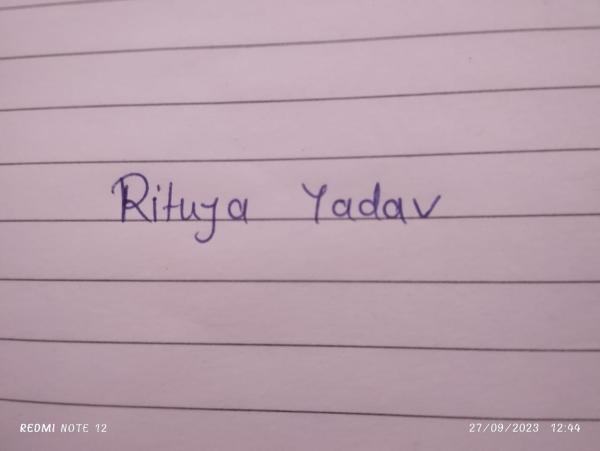 Rituja Yadav
REDMI NOTE 12 27/09/2023 12:44